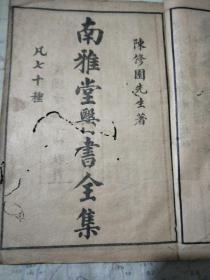 陳修園先生著
南雅堂醫書全集
凡七十種